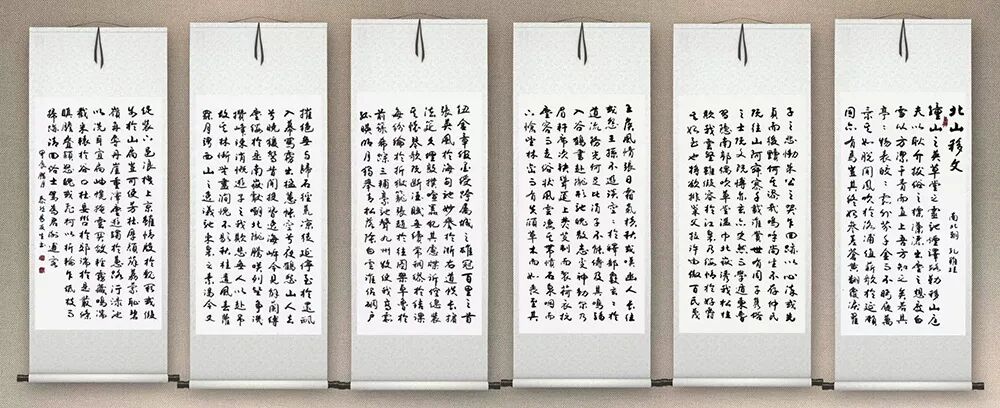 北山移文
南北朝 孔稚珪
鍾山之英草堂之靈馳煙驛路勒移山庭
夫以耿介拔俗之標瀟灑出塵之想度白
雪以方潔干青雲而直上吾方知之矣若其
亭亭物表皎皎霞外芥千金而不眄屣萬
乘其如脫聞鳳吹於洛浦值薪歌於延瀨
固亦有焉豈其終始參差蒼黃翻覆淚翟
子之悲慟朱公之哭乍回跡以心染或先
貞而後黷何其謬哉嗚呼尚生不存仲氏
既往山阿寂寥千載誰賞世有周子雋俗
之士既文既博亦玄亦史然而學遁東魯
習隱南郭偶吹草堂濫巾北嶽誘我松桂
欺我雲壑雖假容於江皋乃纓情於好爵
其始至也將欲排巢父拉許由傲百氏蔑
王侯風情張日霜氣橫秋或嘆幽人長往
或怨王孫不遊談空空於釋部覈玄玄於
道流務光何足比涓子不能儔及其鳴騶
入谷鶴書赴隴形馳魄散志變神動爾乃
眉軒席次袂聳筵上焚芰製而裂荷衣抗
塵容而走俗狀風雲悽其帶憤石泉咽而
下愴望林巒而有失顧草木而如喪至其
紐金章綰墨綬跨屬城之雄冠百里之首
張英風於海甸馳妙譽於浙右道帙長殯
法筵久埋敲撲喧囂犯其慮牒訴倥傯裝
其懷琴歌既斷酒賦無續常綢繆於結課
每紛綸於折獄籠張趙於往圖架卓魯於
前籙希蹤三輔豪馳聲九州牧使我高霞
孤映明月獨舉青松落蔭白雲誰侶澗戶
摧絕無與歸石徑荒涼徒延佇至於還飆
入幕寫霧出楹蕙帳空兮夜鶴怨山人去
兮曉猿驚昔聞投簪逸海岸今見解蘭縛
塵纓於是南嶽獻嘲北隴騰笑列壑爭譏
攢峰竦誚慨遊子之我欺悲無人以赴弔
故其林慚無盡澗愧不歇秋桂遣風春蘿
罷月騁西山之逸議馳東皋之素謁今又
促裝下邑浪栧上京雖情殷於魏闕或假
步於山扃豈可使芳杜厚顏薜荔蒙恥碧
嶺再辱丹崖重滓塵遊躅於蕙路污淥池
以洗耳宜扃岫幌掩雲關斂輕霧藏鳴湍
截來轅於谷口杜妄轡於郊端於是叢條
瞋膽疊穎怒魄或飛柯以折輪乍低枝而
掃跡請回俗士駕為君謝逋客
甲辰